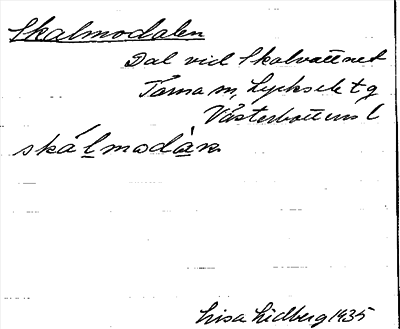 Skalmodalen
Dal vid Skalvattnet
Tärna sn, Lycksele tg
Västerbottens l
skálmodàn
Lisa Lidberg 1935